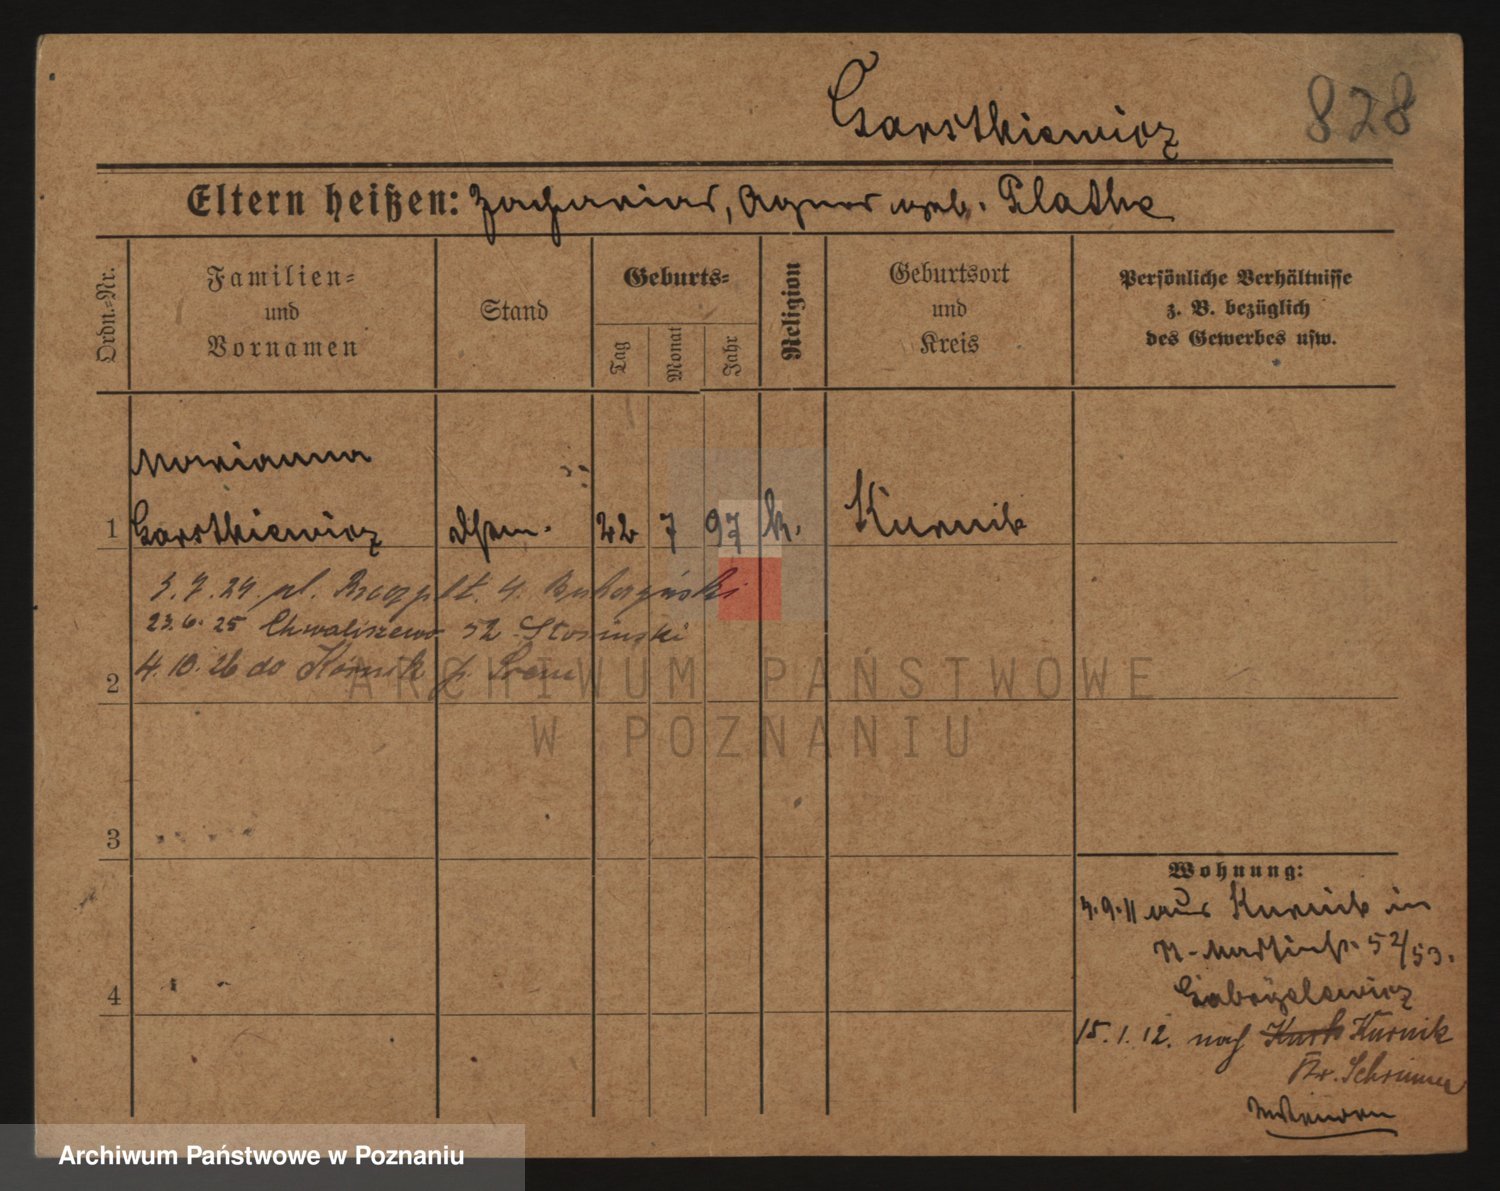 Garstkiewicz
828
Eltern heißen: Zacharias, Agnes geb. Plathe
Ordn.=Nr.
Familien=
und
Vornamen
Stand
Geburts=
Tag
Monat
Jahr
Religion
Geburtsort
und
Kreis
Persönliche Verhältnisse
z. B. bezüglich
des Gewerbes usw.
Marianna
1 Garstkiewicz 22 7 97 k. Kurnik
3.7.24. pl.
23.6.25 Chwaliszewo 52 Stosinski
2 4.10.26 do Kórnik p. Śrem
3
4
Wohnung:
3.9.11 aus Kurnik in
52/53.
Gabryelewicz
15.1.12. nach Kurk Kurnik
Kr. Schrimm
ARCHIWUM PAŃSTWOWE
W POZNANIU
Archiwum Państwowe w Poznaniu